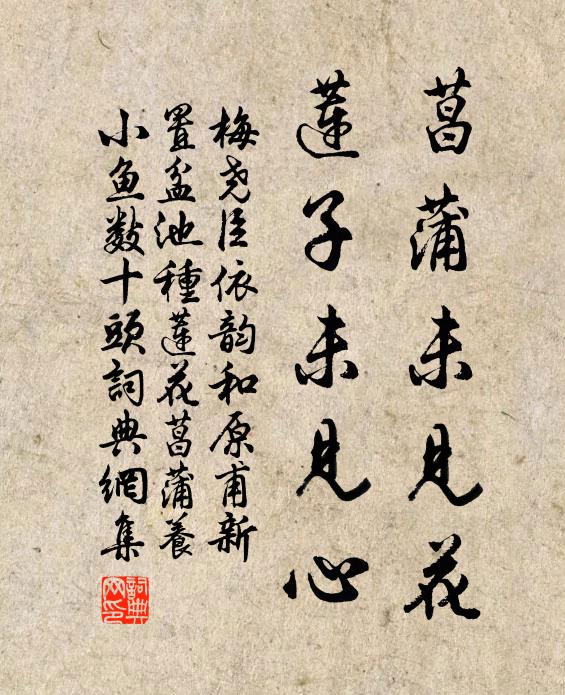 菖蒲未見花
蓮子未見心
梅尧臣依韵和原甫新
置盆池種蓮花菖蒲養
小魚數十頭詞典網集
詞典网印